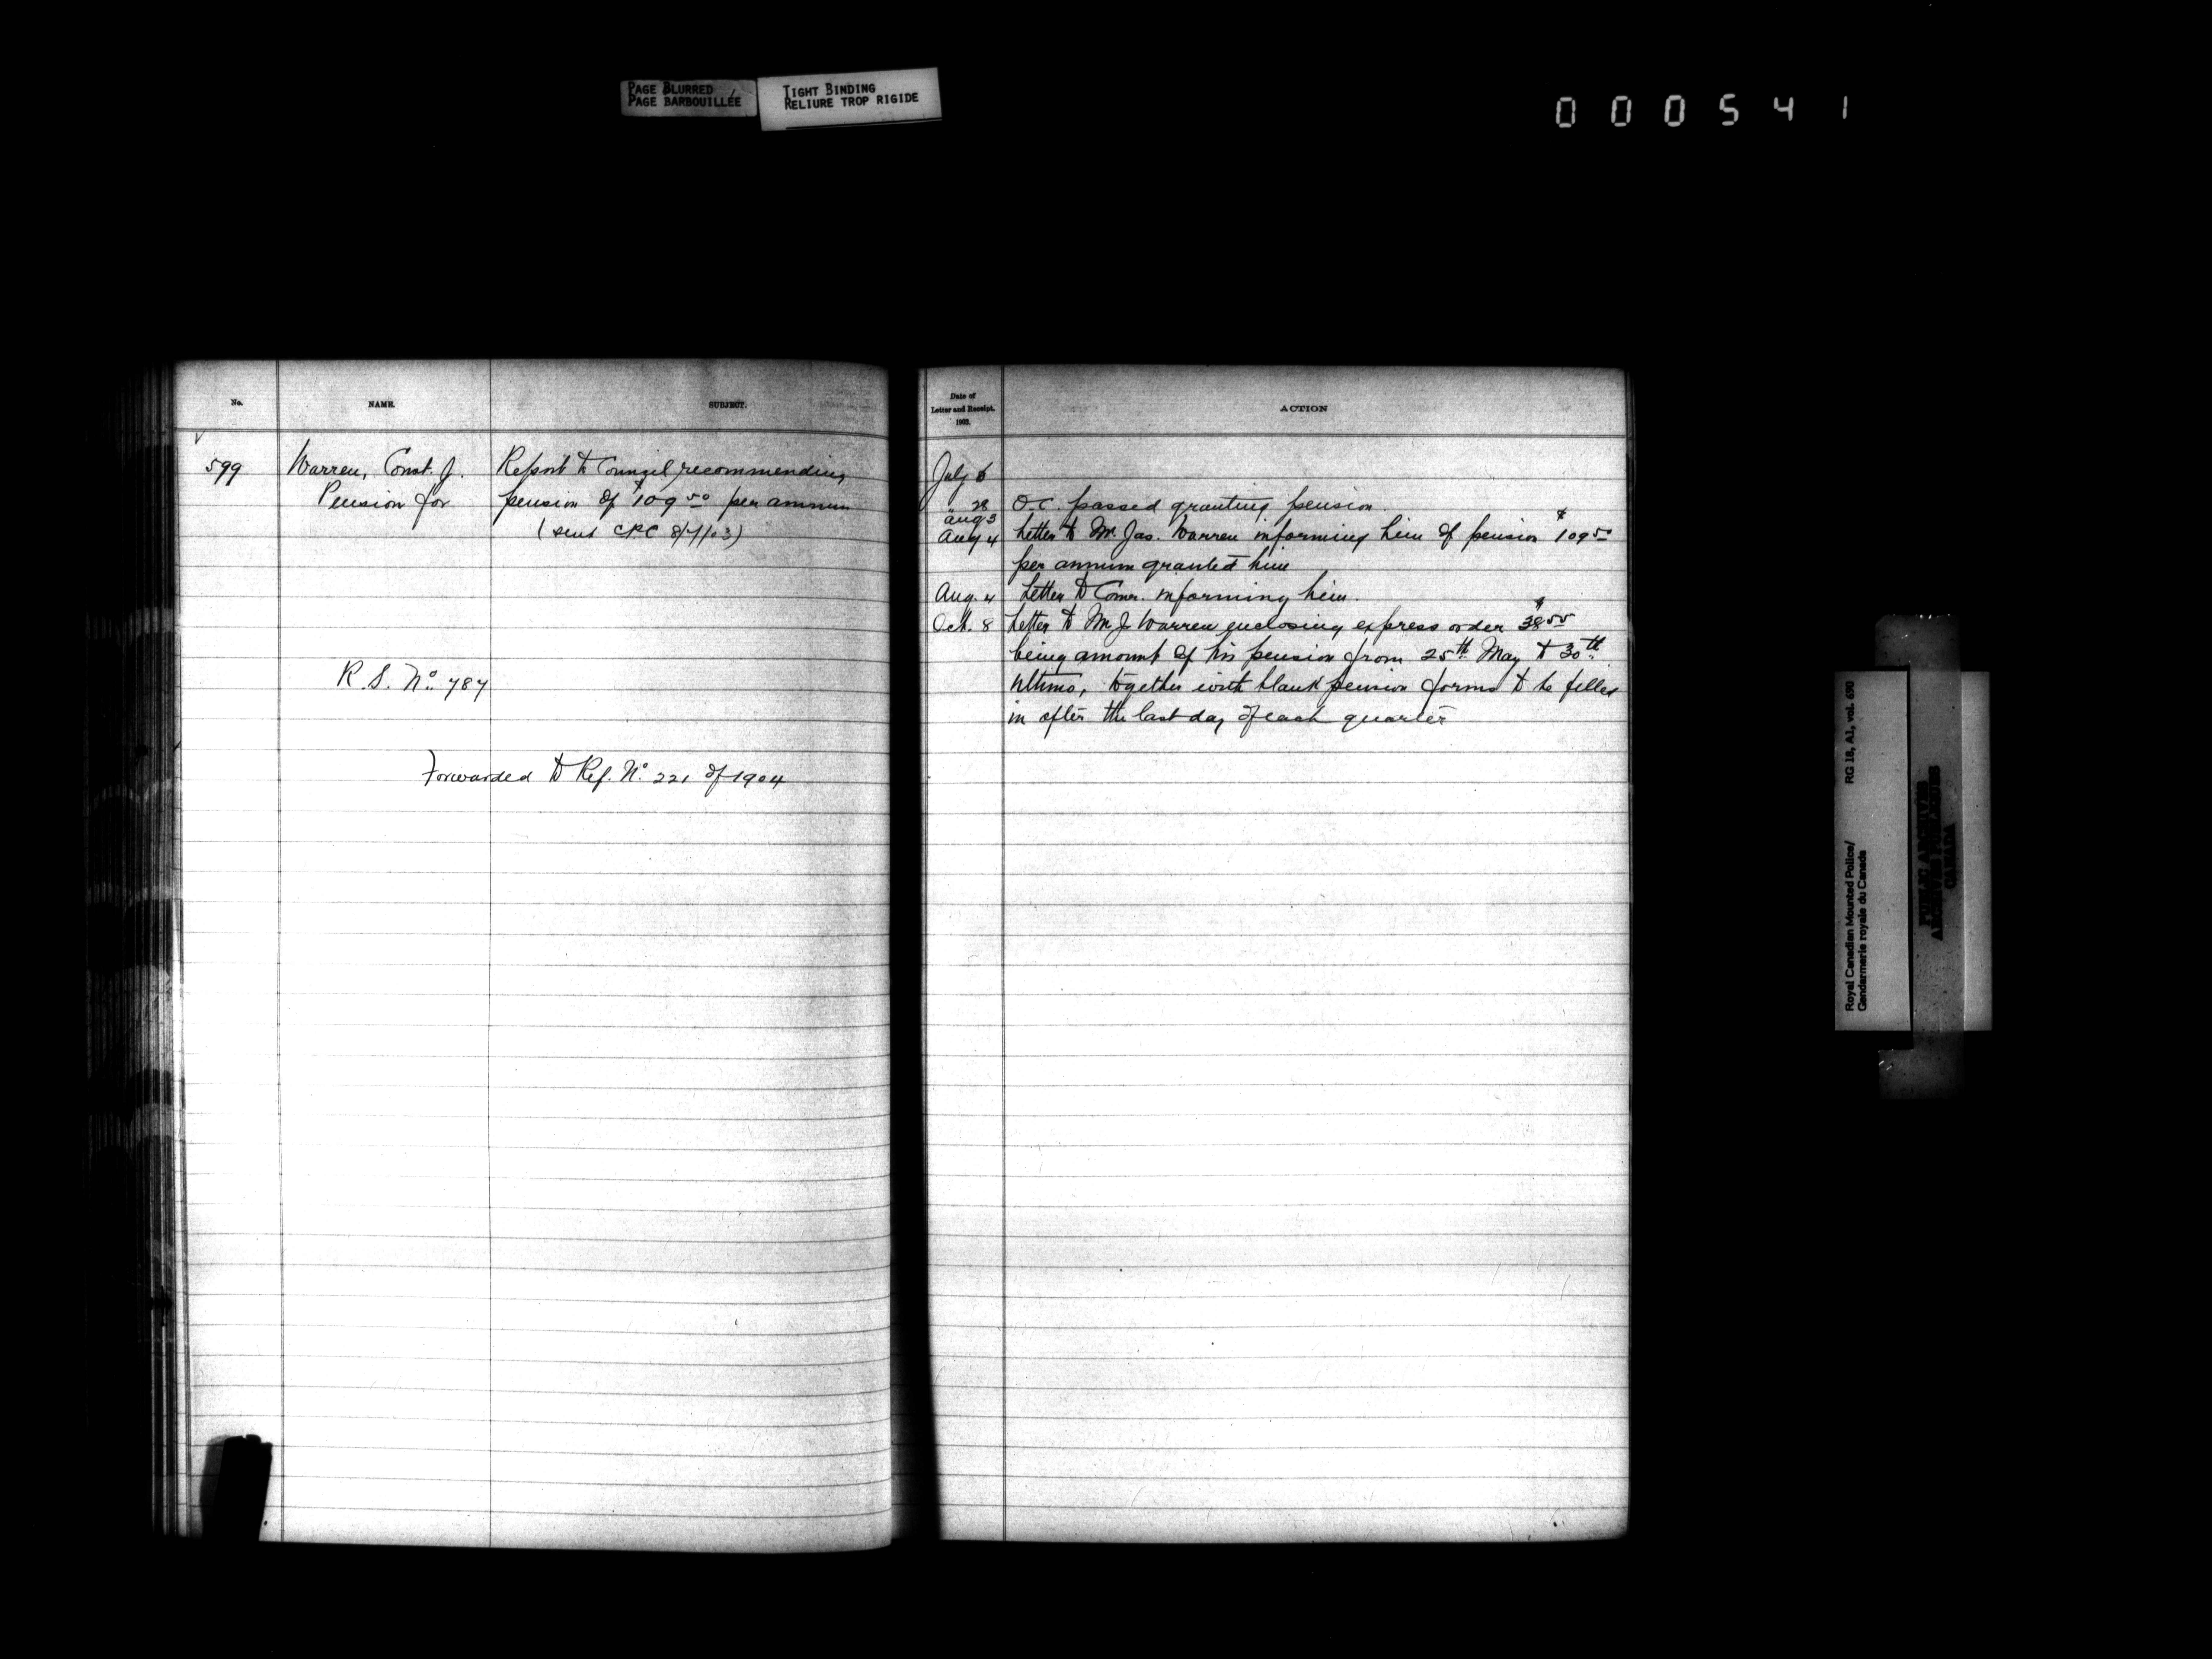 PAGE BLURRED
PAGE BARBOUILLÉE
TIGHT BINDING
RELIURE TROP RIGIDE
000541
No.
NAME.
SUBJECT.
599
Warren, Const. J.
Pension for
Report to Council recommending
pension of $109 50 per annum
(sent CPC 8/7/03)
R.S. No. 787
Forwarded to Ref. No. 221 of 1904
Date of
Letter and Receipt.
1903.
ACTION
July 6
" 28 O.C. passed granting pension.
Aug 3
Aug 4 Letter to Mr. Jas. Warren informing him of pension $109 50
per annum granted him
Aug. 4 Letter to Comr. informing him.
Oct. 8 Letter to Mr. J. Warren enclosing express order $38 55
being amount of his pension from 25th May to 30th
ultimo, together with blank pension forms to be filled
in after the last day of each quarter
Royal Canadian Mounted Police/ RG 18, A1, vol. 690
Gendarmerie royale du Canada
PUBLIC ARCHIVES
ARCHIVES PUBLIQUES
CANADA